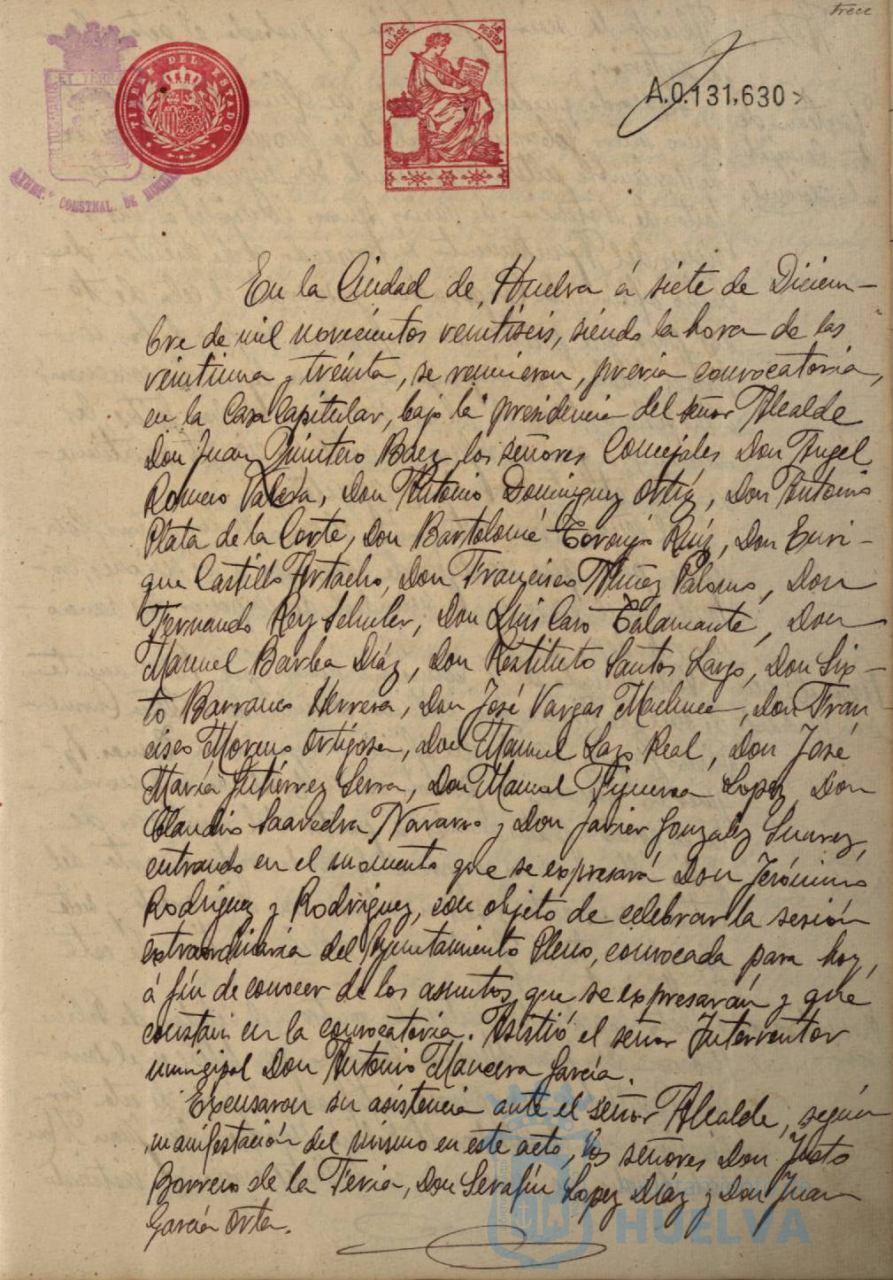 trece
TIMBRE DEL ESTADO
7ª CLASE
PESETAS
A.0.131,630
AYUNT.º CONSTNAL. DE HUELVA
En la Ciudad de Huelva á siete de Diciem-
bre de mil novecientos veintiseis, siendo la hora de las
veintiuna y treinta, se reunieron, previa convocatoria,
en la Casa Capitular, bajo la presidencia del señor Alcalde
Don Juan Quintero Baez los señores Concejales Don Angel
Romero Valera, Don Antonio Dominguez Ortiz, Don Antonio
Plata de la Corte, Don Bartolomé Toronjo Ruiz, Don Enri-
que Castillo Artacho, Don Francisco Núñez Palomo, Don
Fernando Rey Schuler, Don Luis Caro Talamante, Don
Manuel Barba Díaz, Don Restituto Santos Lazo, Don Six-
to Barranco Herrera, Don José Vargas Machuca, Don Fran-
cisco Moreno Ortigosa, Don Manuel Lazo Real, Don José
María Gutiérrez Serra, Don Manuel Figueroa Lopez, Don
Claudio Saavedra Navarro y Don Javier Gonzalez Suarez,
entrando en el momento que se expresará Don Jerónimo
Rodríguez y Rodríguez, con objeto de celebrar la sesión
extraordinaria del Ayuntamiento Pleno, convocada para hoy,
á fín de conocer de los asuntos que se expresarán y que
constan en la convocatoria. Asistió el señor Interventor
municipal Don Antonio Mancera García.
Excusaron su asistencia ante el señor Alcalde, según
manifestación del mismo en este acto, los señores Don Justo
Borrero de la Feria, Don Serafín Lopez Díaz y Don Juan
García Orta.
HUELVA